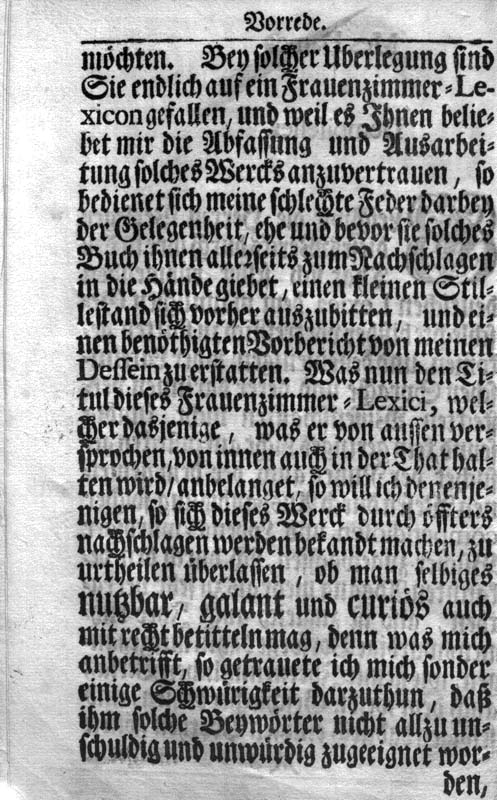 Vorrede.
möchten. Bey solcher Uberlegung sind
Sie endlich auf ein Frauenzimmer-Le-
xicon gefallen, und weil es Ihnen belie-
bet mir die Abfassung und Ausarbei-
tung solches Wercks anzuvertrauen, so
bedienet sich meine schlechte Feder darbey
der Gelegenheit, ehe und bevor sie solches
Buch ihnen allerseits zum Nachschlagen
in die Hände giebet, einen kleinen Stil-
lestand sich vorher auszubitten, und ei-
nen benöthigten Vorbericht von meinen
Dessein zu erstatten. Was nun den Ti-
tul dieses Frauenzimmer-Lexici, wel-
cher dasjenige, was er von aussen ver-
sprochen, von innen auch in der That hal-
ten wird/ anbelanget, so will ich denenje-
nigen, so sich dieses Werck durch öffters
nachschlagen werden bekandt machen, zu
urtheilen überlassen, ob man selbiges
nutzbar, galant und curiös auch
mit recht betitteln mag, denn was mich
anbetrifft, so getrauete ich mich sonder
einige Schwürigkeit darzuthun, daß
ihm solche Beywörter nicht allzu un-
schuldig und unwürdig zugeeignet wor-
den,